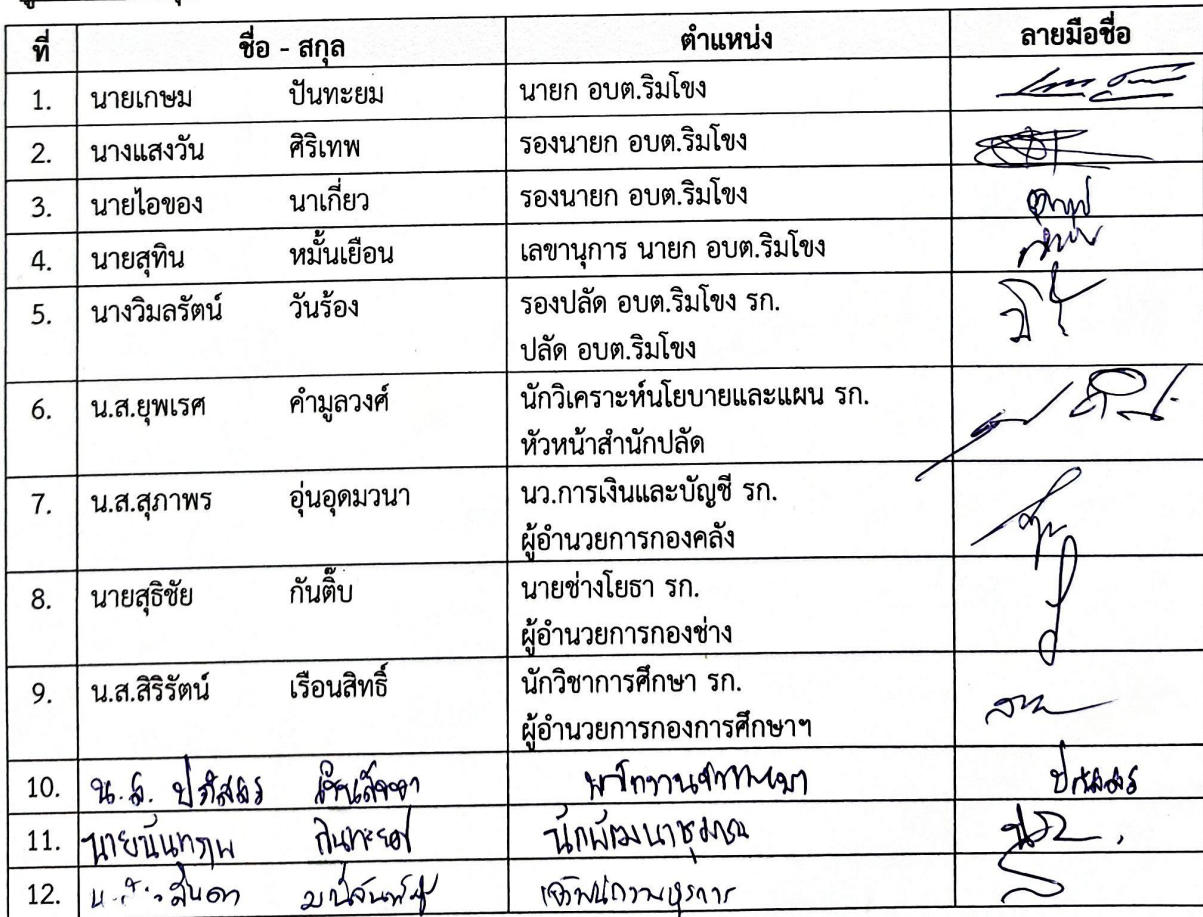 ที่ ชื่อ - สกุล ตำแหน่ง ลายมือชื่อ
1. นายเกษม ปันทะยม นายก อบต.ริมโขง
2. นางแสงวัน ศิริเทพ รองนายก อบต.ริมโขง
3. นายไอของ นาเกี่ยว รองนายก อบต.ริมโขง
4. นายสุทิน หมั้นเยือน เลขานุการ นายก อบต.ริมโขง
5. นางวิมลรัตน์ วันร้อง รองปลัด อบต.ริมโขง รก.
ปลัด อบต.ริมโขง
6. น.ส.ยุพเรศ คำมูลวงศ์ นักวิเคราะห์นโยบายและแผน รก.
หัวหน้าสำนักปลัด
7. น.ส.สุภาพร อุ่นอุดมวนา นว.การเงินและบัญชี รก.
ผู้อำนวยการกองคลัง
8. นายสุธิชัย กันติ๊บ นายช่างโยธา รก.
ผู้อำนวยการกองช่าง
9. น.ส.สิริรัตน์ เรือนสิทธิ์ นักวิชาการศึกษา รก.
ผู้อำนวยการกองการศึกษาฯ
10. น.ส. ปภัสสร ปภัสสร
11. นักพัฒนาชุมชน
12. เจ้าพนักงานธุรการ